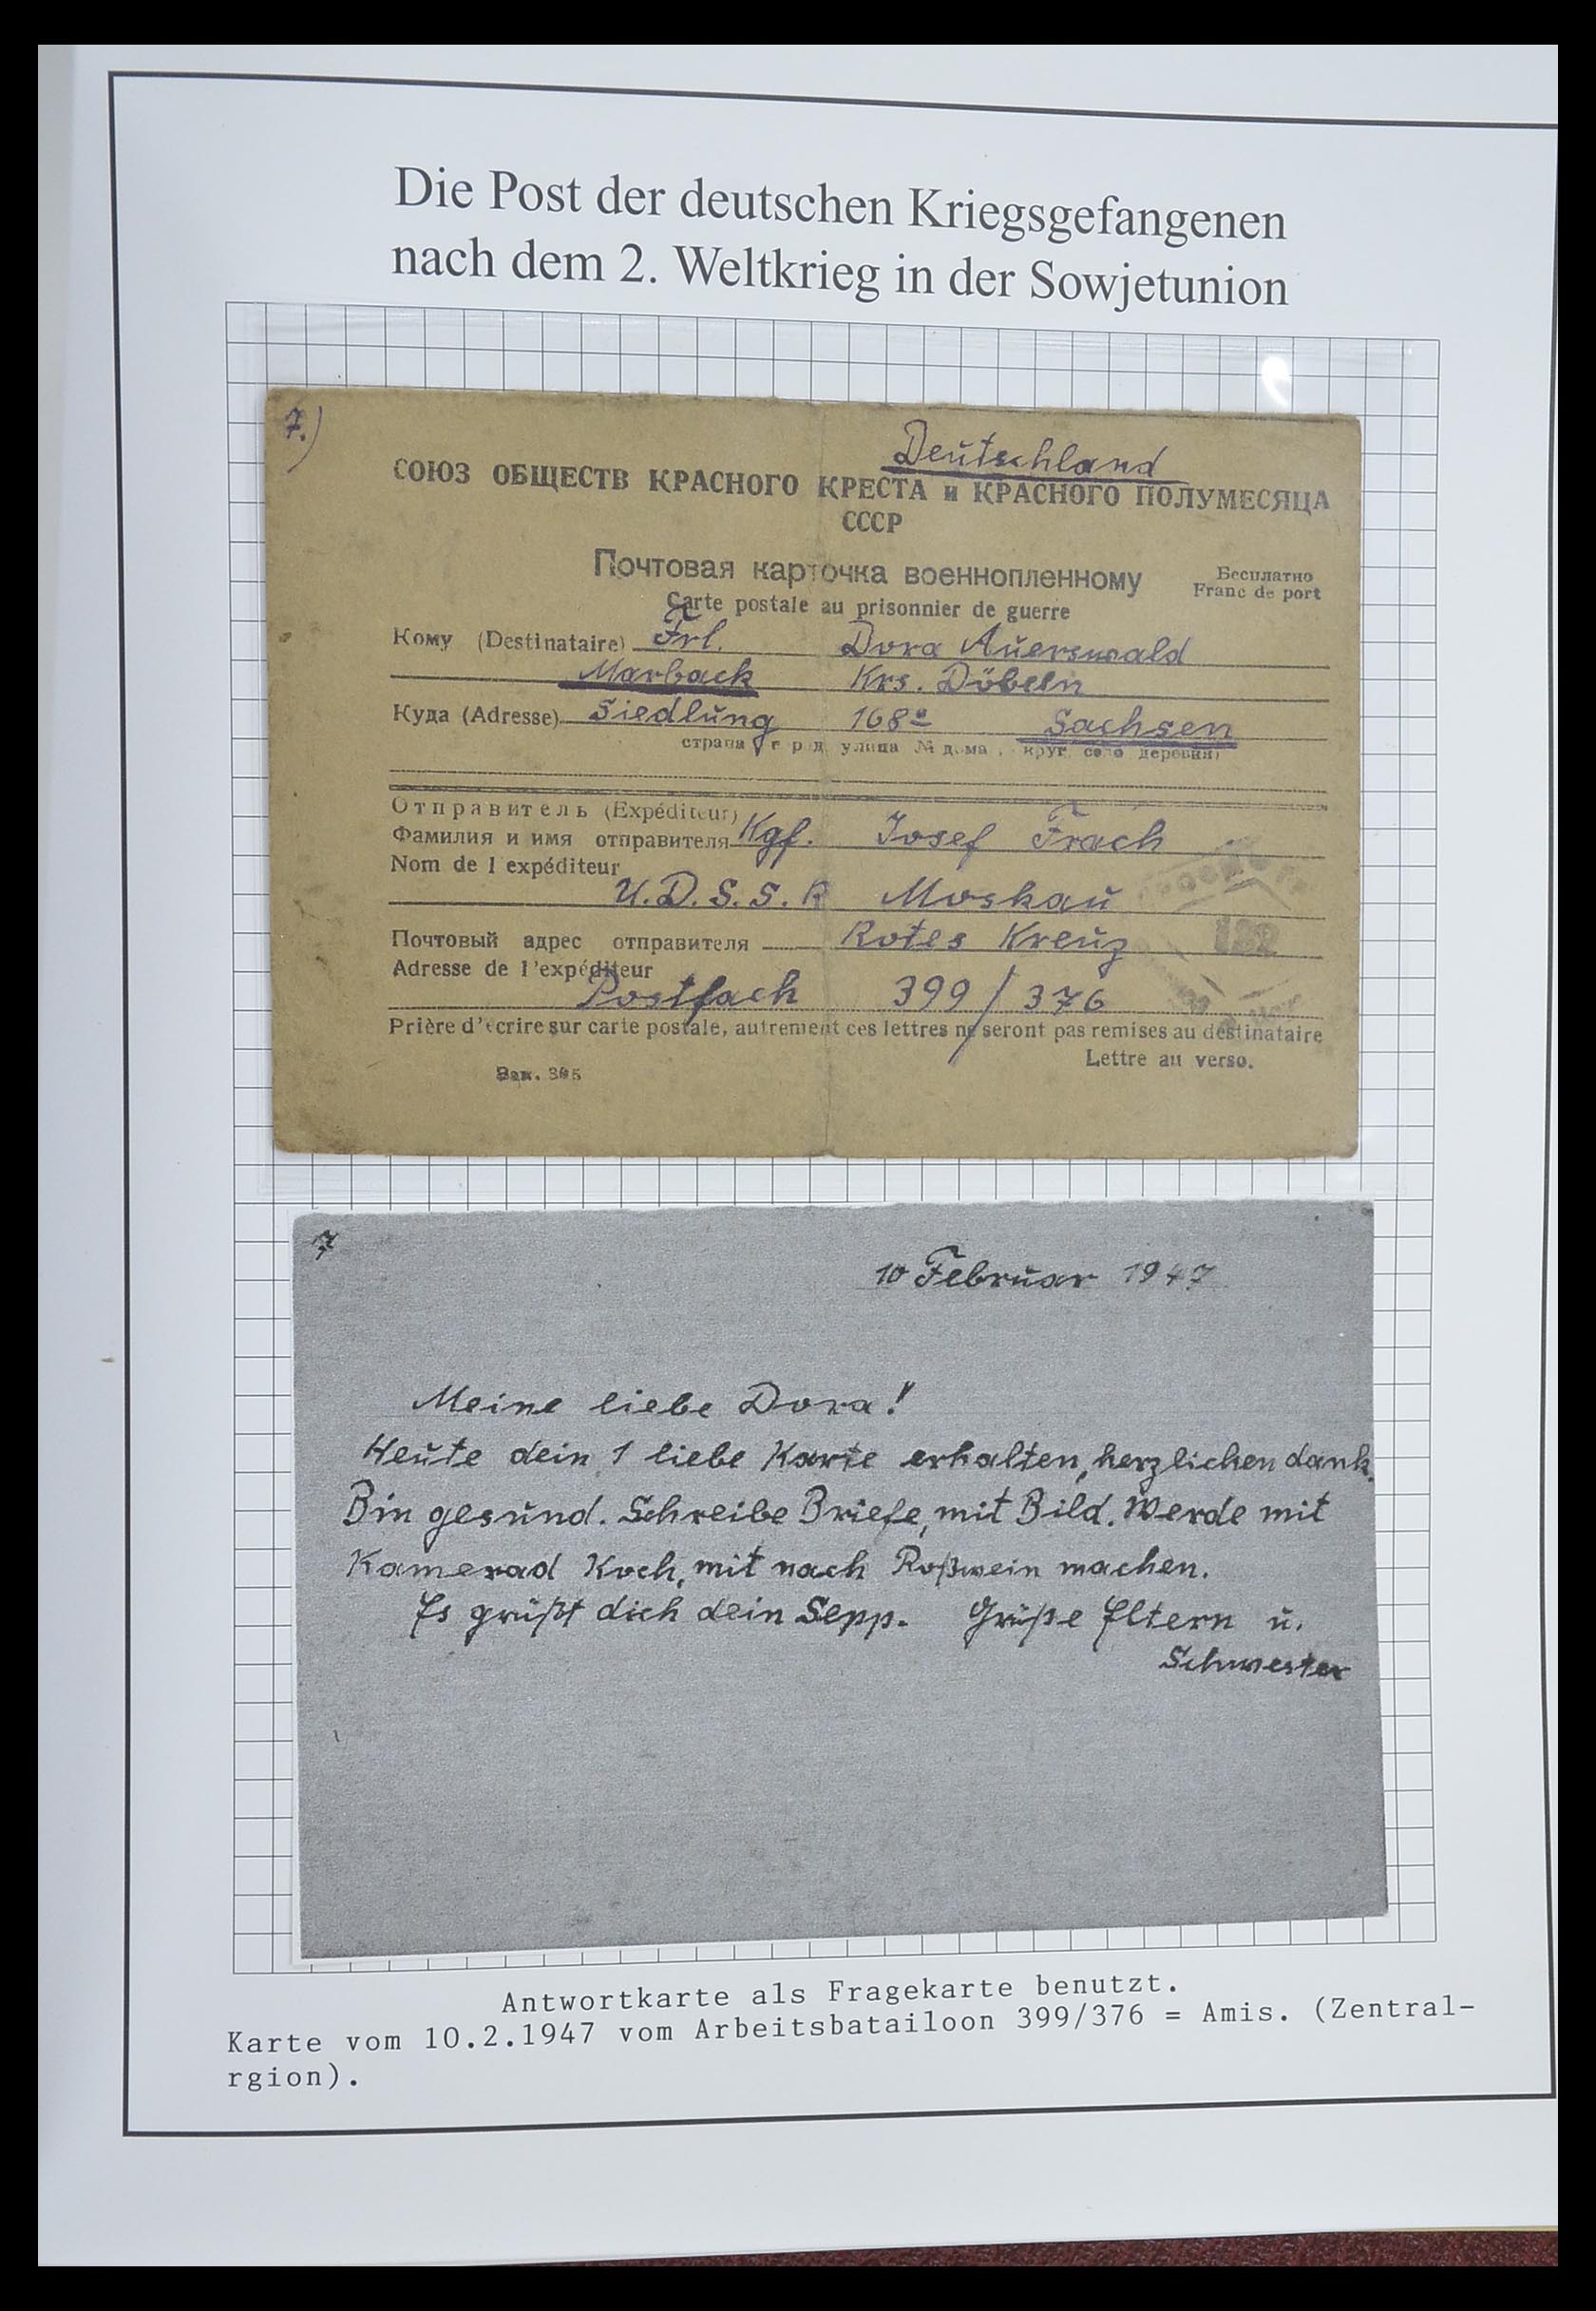 Die Post der deutschen Kriegsgefangenen
nach dem 2. Weltkrieg in der Sowjetunion
7.)
Deutschland
СОЮЗ ОБЩЕСТВ КРАСНОГО КРЕСТА и КРАСНОГО ПОЛУМЕСЯЦА
СССР
Почтовая карточка военнопленному
Бесплатно
Carte postale au prisonnier de guerre
Franc de port
Кому (Destinataire) Frl. Dora Auerswald
Marbach Krs. Döbeln
Куда (Adresse) Siedlung 168e Sachsen
страна улица № дома, округ, село деревня)
Отправитель (Expéditeur)
Фамилия и имя отправителя Kgf. Josef Frach
Nom de l expéditeur
U.D.S.S.R Moskau
Почтовый адрес отправителя Rotes Kreuz
Adresse de l'expéditeur
Postfach 399/376
132
Prière d'écrire sur carte postale, autrement ces lettres ne seront pas remises au destinataire
Lettre au verso.
Зак. 395
7
10 Februar 1947
Meine liebe Dora!
Heute dein 1 liebe Karte erhalten, herzlichen dank.
Bin gesund. Schreibe Briefe, mit Bild. Werde mit
Kamerad Koch, mit nach Roßwein machen.
Es grüßt dich dein Sepp. Grüße Eltern u.
Schwester
Antwortkarte als Fragekarte benutzt.
Karte vom 10.2.1947 vom Arbeitsbatailoon 399/376 = Amis. (Zentral-
rgion).